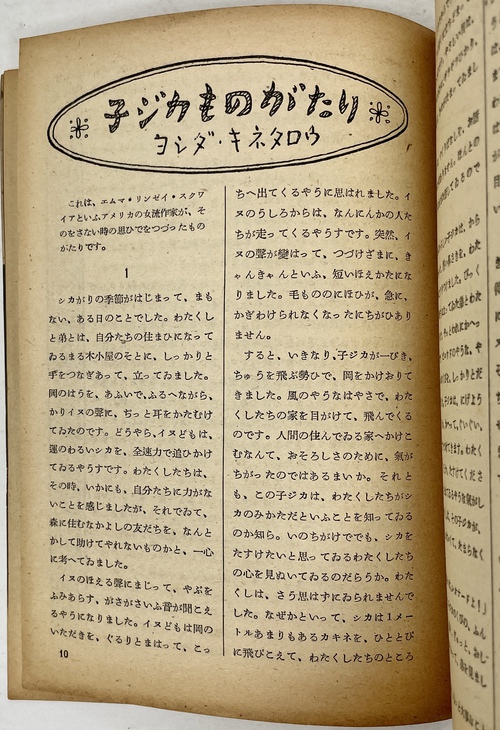 子ジカものがたり
ヨシダ・キネタロウ
これは、エムマ・リンゼイ・スクワ
イアといふアメリカの女流作家が、そ
のをさない時の思ひでをつづったもの
がたりです。
1
シカがりの季節がはじまって、まも
ない、ある日のことでした。わたくし
と弟とは、自分たちの住まひになって
ゐるまる木小屋のそとに、しっかりと
手をつなぎあって、立ってゐました。
岡のはうを、あふいで、ふるへながら、
かりイヌの聲に、ぢっと耳をかたむけ
てゐたのです。どうやら、イヌどもは、
運のわるいシカを、全速力で追ひかけ
てゐるやうすです。わたくしたちは、
その時、いかにも、自分たちに力がな
いことを感じましたが、それでゐて、
森に住むなかよしの友だちを、なんと
かして助けてやれないものかと、一心
に考へてゐました。
イヌのほえる聲にまじって、やぶを
ふみあらす、がさがさいふ音が聞こえ
るやうになりました。イヌどもは岡の
いただきを、ぐるりとまはって、こっ
ちへ出てくるやうに思はれました。イ
ヌのうしろからは、なんにんかの人た
ちが走ってくるやうすです。突然、イ
ヌの聲が變はって、つづけざまに、き
ゃんきゃんといふ、短いほえかたにな
りました。毛もののにほひが、急に、
かぎわけられなくなったにちがひあり
ません。
すると、いきなり、子ジカが一ぴき、
ちゅうを飛ぶ勢ひで、岡をかけおりて
きました。風のやうなはやさで、わた
くしたちの家を目がけて、飛んでくる
のです。人間の住んでゐる家へかけこ
むなんて、おそろしさのために、氣が
ちがったのではあるまいか。それと
も、この子ジカは、わたくしたちがシ
カのみかただといふことを知ってゐる
のか知ら。いのちがけででも、シカを
たすけたいと思ってゐるわたくしたち
の心を見ぬいてゐるのだらうか。わた
くしは、さう思はずにゐられませんで
した。なぜかといって、シカは1メー
トルあまりもあるカキネを、ひととび
に飛びこえて、わたくしたちのところ
10